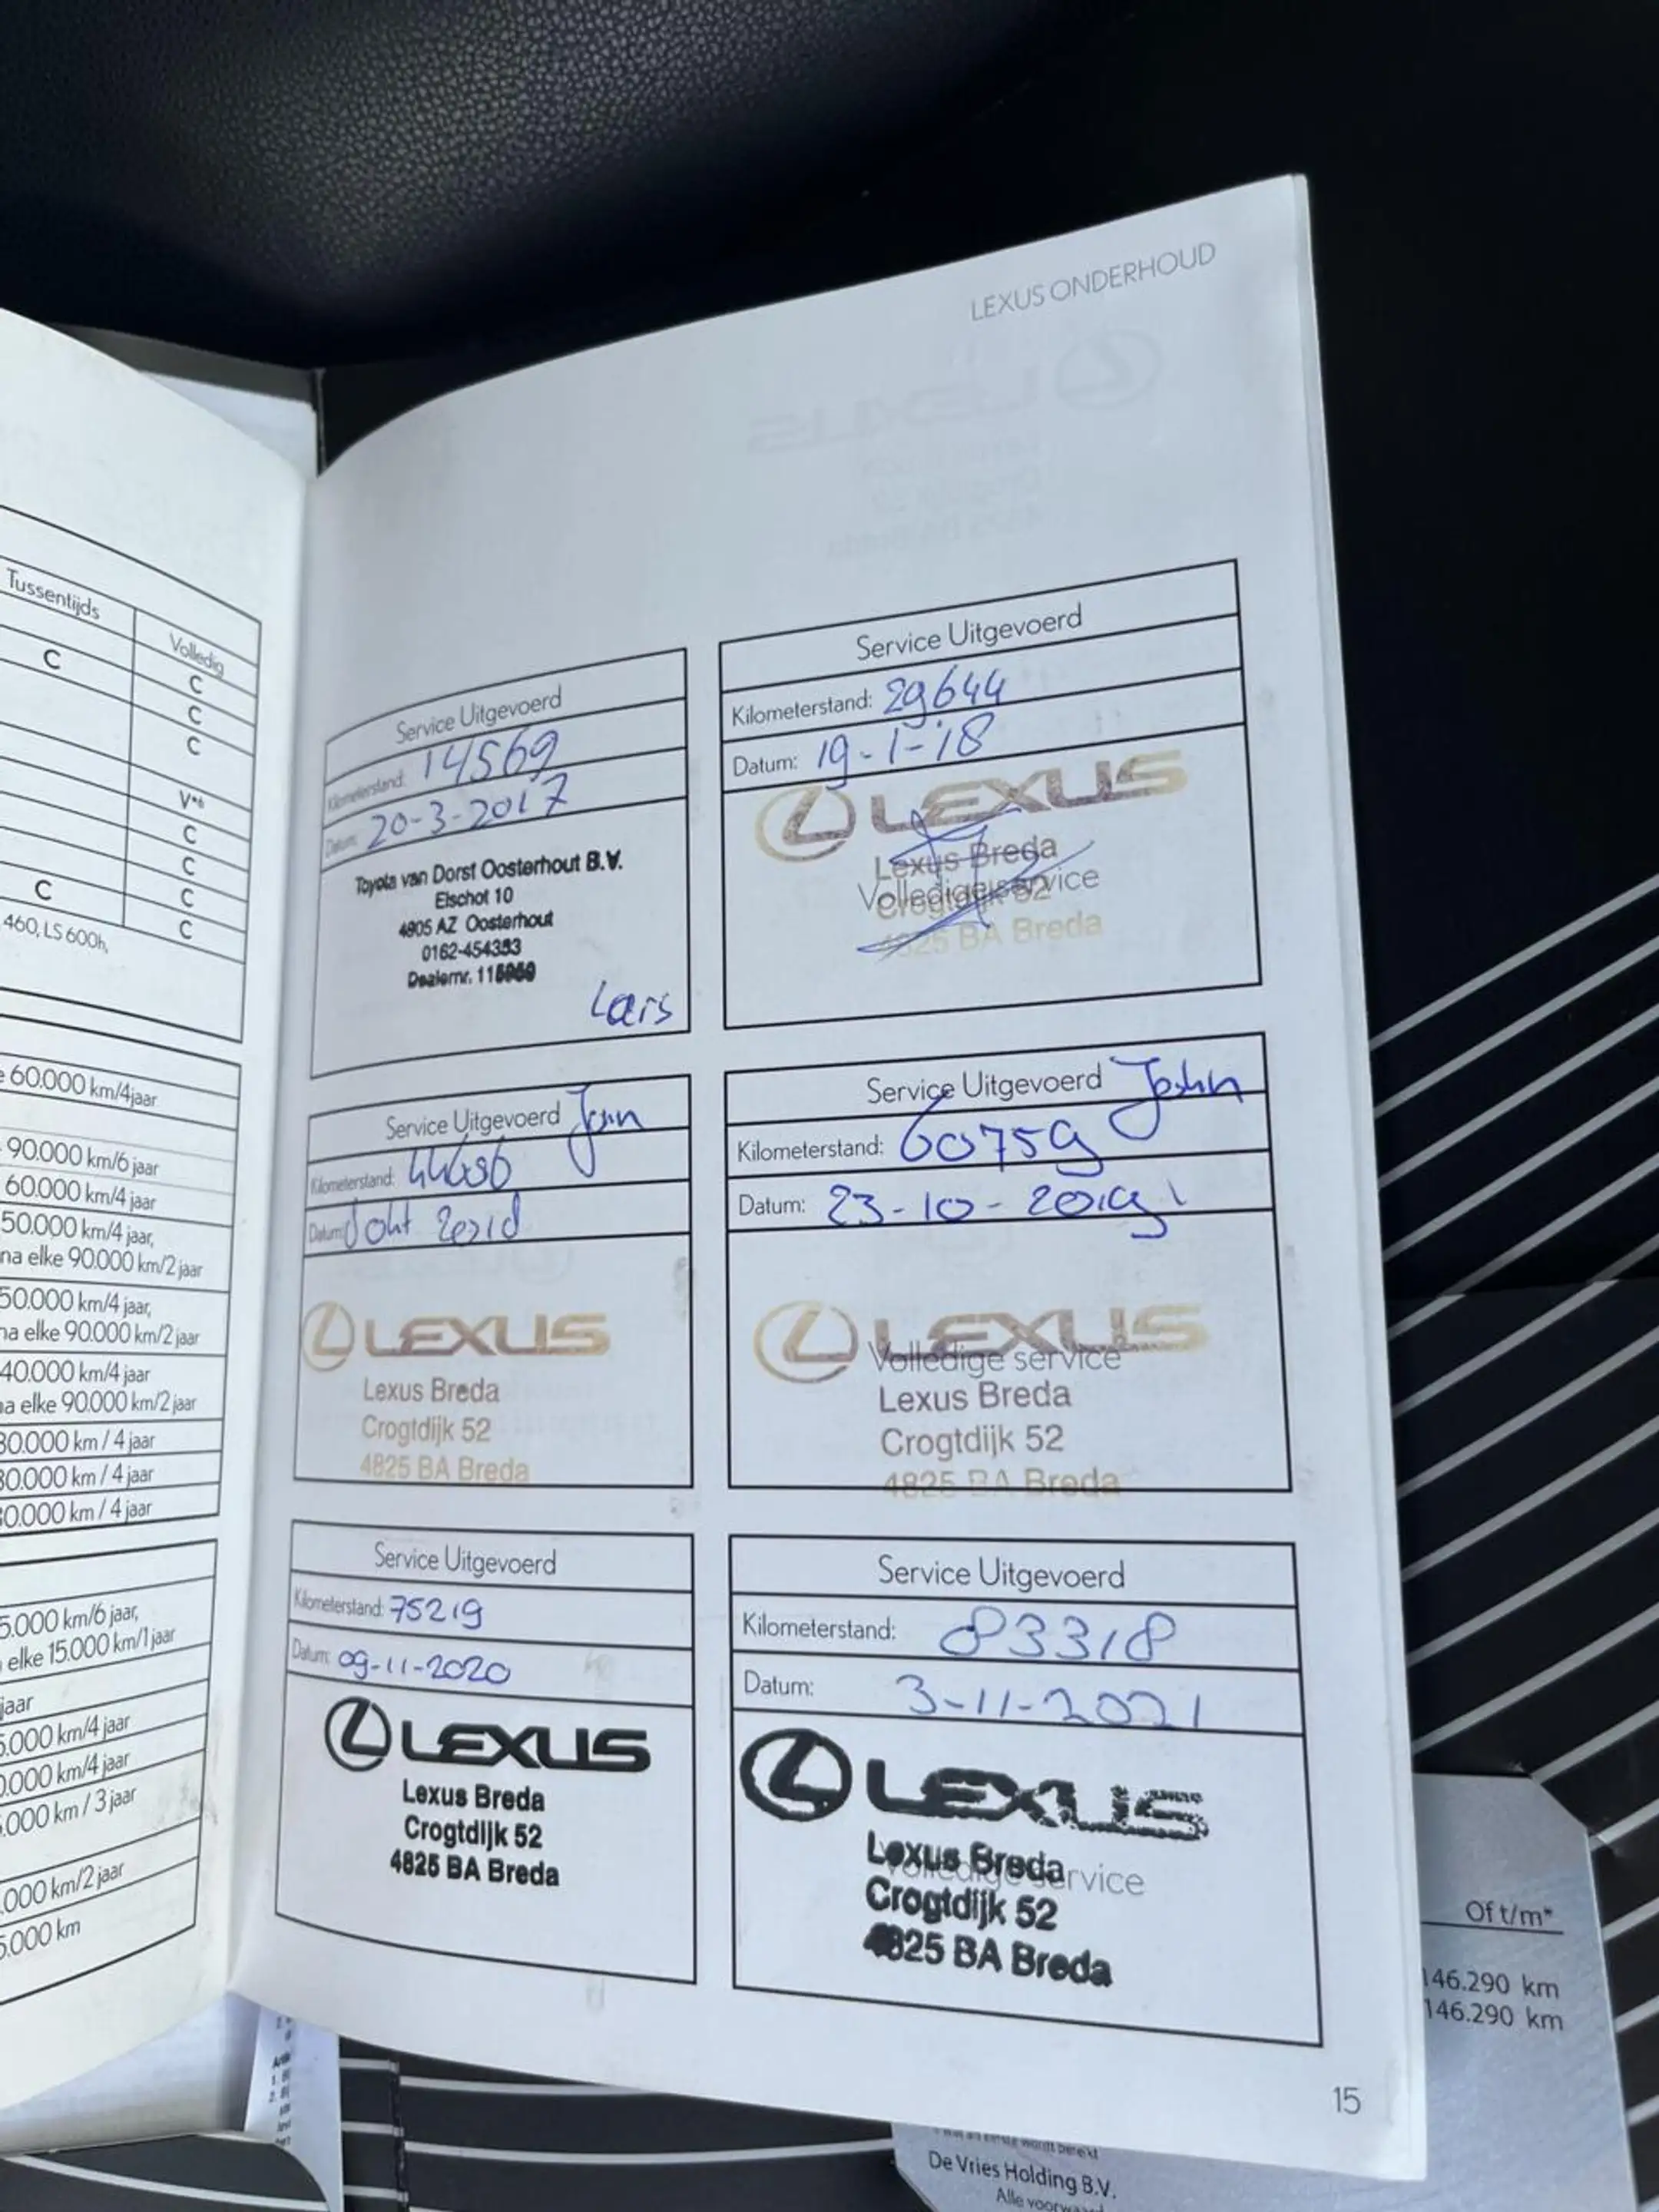 LEXUS ONDERHOUD
Tussentijds
Volledig
C
C
C
C
V*6
C
C
C
C
C
460, LS 600h,
60.000 km/4jaar
90.000 km/6 jaar
60.000 km/4 jaar
50.000 km/4 jaar,
na elke 90.000 km/2 jaar
50.000 km/4 jaar,
na elke 90.000 km/2 jaar
40.000 km/4 jaar
na elke 90.000 km/2 jaar
30.000 km / 4 jaar
30.000 km / 4 jaar
30.000 km / 4 jaar
5.000 km/6 jaar,
elke 15.000 km/1 jaar
jaar
.000 km/4 jaar
.000 km/4 jaar
.000 km / 3 jaar
.000 km/2 jaar
5.000 km
Service Uitgevoerd
Kilometerstand: 14569
Datum: 20-3-2017
Toyota van Dorst Oosterhout B.V.
Elschot 10
4905 AZ Oosterhout
0162-454353
Dealernr.
Lars
Service Uitgevoerd
Kilometerstand: 29644
Datum: 19-1-18
LEXUS
Lexus Breda
Volledige service
Crogtdijk 52
4825 BA Breda
Service Uitgevoerd
Kilometerstand:
Datum:
LEXUS
Lexus Breda
Crogtdijk 52
4825 BA Breda
Service Uitgevoerd John
Kilometerstand: 60759
Datum: 23-10-2019
LEXUS
Volledige service
Lexus Breda
Crogtdijk 52
4825 BA Breda
Service Uitgevoerd
Kilometerstand: 75219
Datum: 09-11-2020
LEXUS
Lexus Breda
Crogtdijk 52
4825 BA Breda
Service Uitgevoerd
Kilometerstand: 83318
Datum: 3-11-2021
LEXUS
Lexus Breda
Volledige service
Crogtdijk 52
4825 BA Breda
15
Of t/m*
146.290 km
146.290 km
De Vries Holding B.V.
Alle